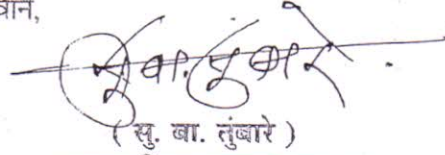 वान,
सु. बा. तुंबारे
( सु. बा. तुंबारे )